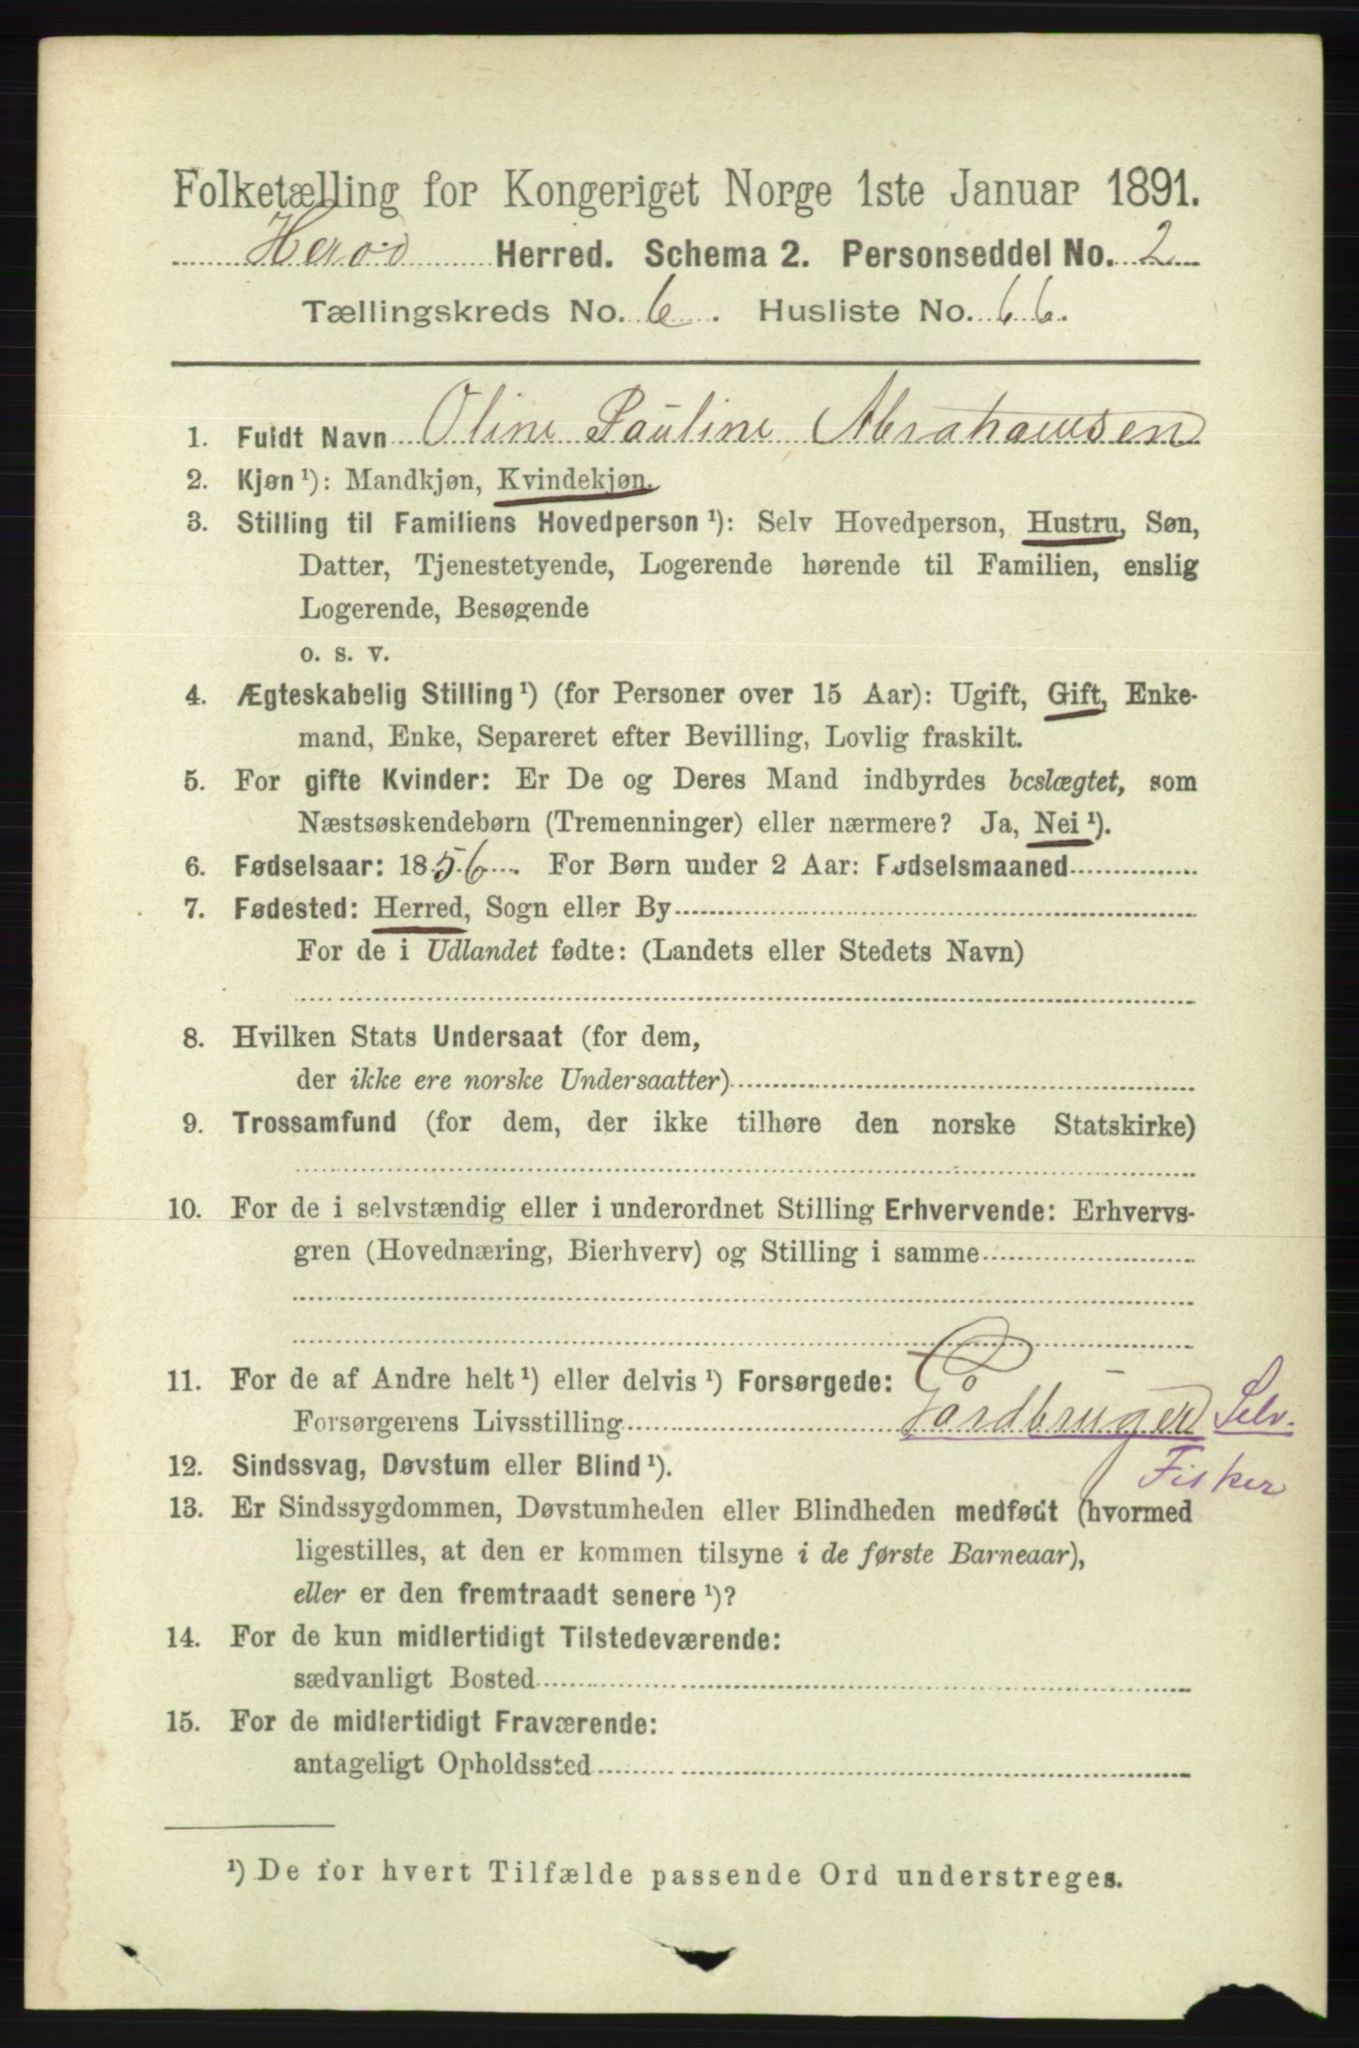 Folketælling for Kongeriget Norge 1ste Januar 1891.
Herød Herred. Schema 2. Personseddel No. 2
Tællingskreds No. 6. Husliste No. 66.
1. Fuldt Navn Oline Pauline Abrahamsen
2. Kjøn ¹): Mandkjøn, Kvindekjøn.
3. Stilling til Familiens Hovedperson ¹): Selv Hovedperson, Hustru, Søn,
Datter, Tjenestetyende, Logerende hørende til Familien, enslig
Logerende, Besøgende
o. s. v.
4. Ægteskabelig Stilling ¹) (for Personer over 15 Aar): Ugift, Gift, Enke-
mand, Enke, Separeret efter Bevilling, Lovlig fraskilt.
5. For gifte Kvinder: Er De og Deres Mand indbyrdes beslægtet, som
Næstsøskendebørn (Tremenninger) eller nærmere? Ja, Nei ¹).
6. Fødselsaar: 1856. For Børn under 2 Aar: Fødselsmaaned
7. Fødested: Herred, Sogn eller By
For de i Udlandet fødte: (Landets eller Stedets Navn)
8. Hvilken Stats Undersaat (for dem,
der ikke ere norske Undersaatter)
9. Trossamfund (for dem, der ikke tilhøre den norske Statskirke)
10. For de i selvstændig eller i underordnet Stilling Erhvervende: Erhvervs-
gren (Hovednæring, Bierhverv) og Stilling i samme
11. For de af Andre helt ¹) eller delvis ¹) Forsørgede:
Forsørgerens Livsstilling Gårdbruger Selv.
Fisker
12. Sindssvag, Døvstum eller Blind ¹).
13. Er Sindssygdommen, Døvstumheden eller Blindheden medfødt (hvormed
ligestilles, at den er kommen tilsyne i de første Barneaar),
eller er den fremtraadt senere ¹)?
14. For de kun midlertidigt Tilstedeværende:
sædvanligt Bosted
15. For de midlertidigt Fraværende:
antageligt Opholdssted
¹) De for hvert Tilfælde passende Ord understreges.